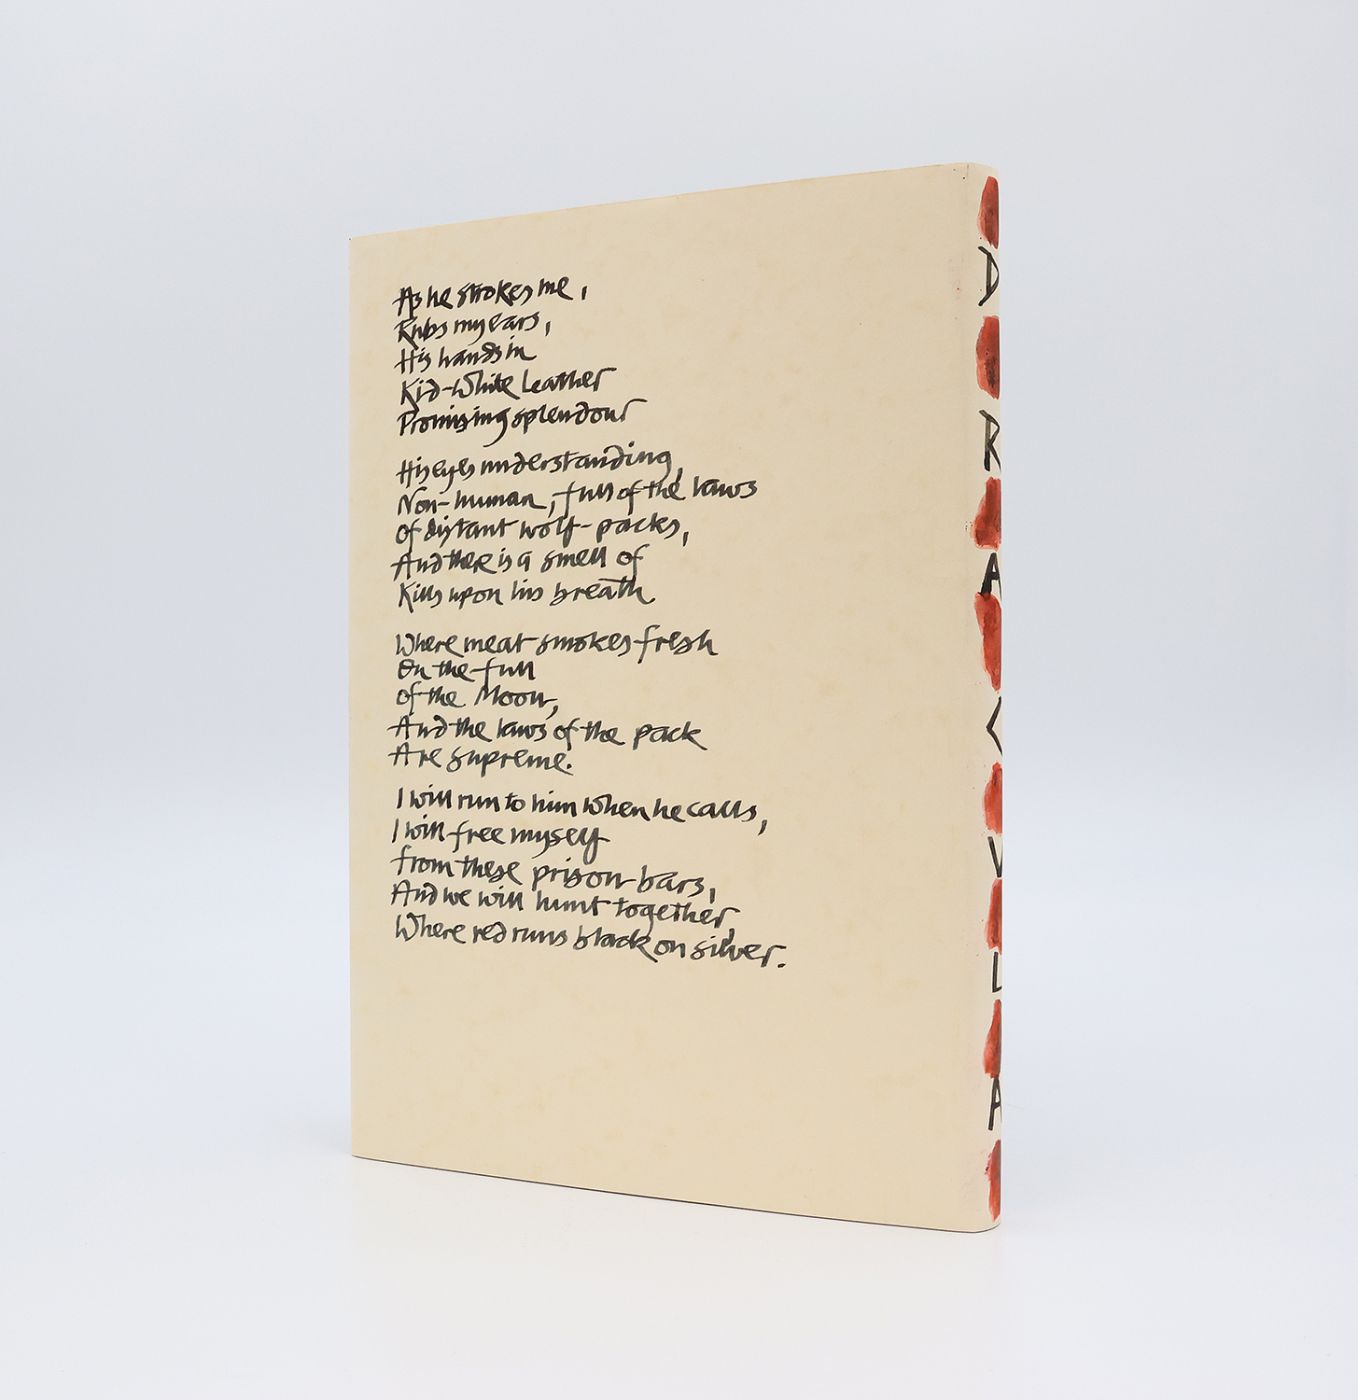 As he strokes me,
Rubs my ears,
His hands in
Kid-White Leather
Promising splendour
His eyes understanding,
Non-human, full of the laws
of distant wolf-packs,
And there is a smell of
Kills upon his breath
Where meat smokes fresh
On the full
of the Moon,
And the laws of the pack
Are supreme.
I will run to him when he calls,
I will free myself
from these prison bars,
And we will hunt together,
Where red runs black on silver.
DRACULA